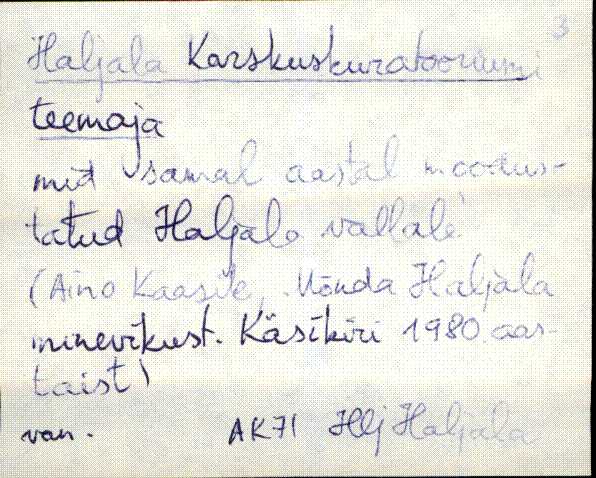 3
Haljala Karskuskuratooriumi
teemaja
mid samal aastal moodus-
tatud Haljala vallale.
(Aino Kaasik, Mõnda Haljala
minevikust. Käsikiri 1980. aas-
taist)
van. AK71 Hlj Haljala